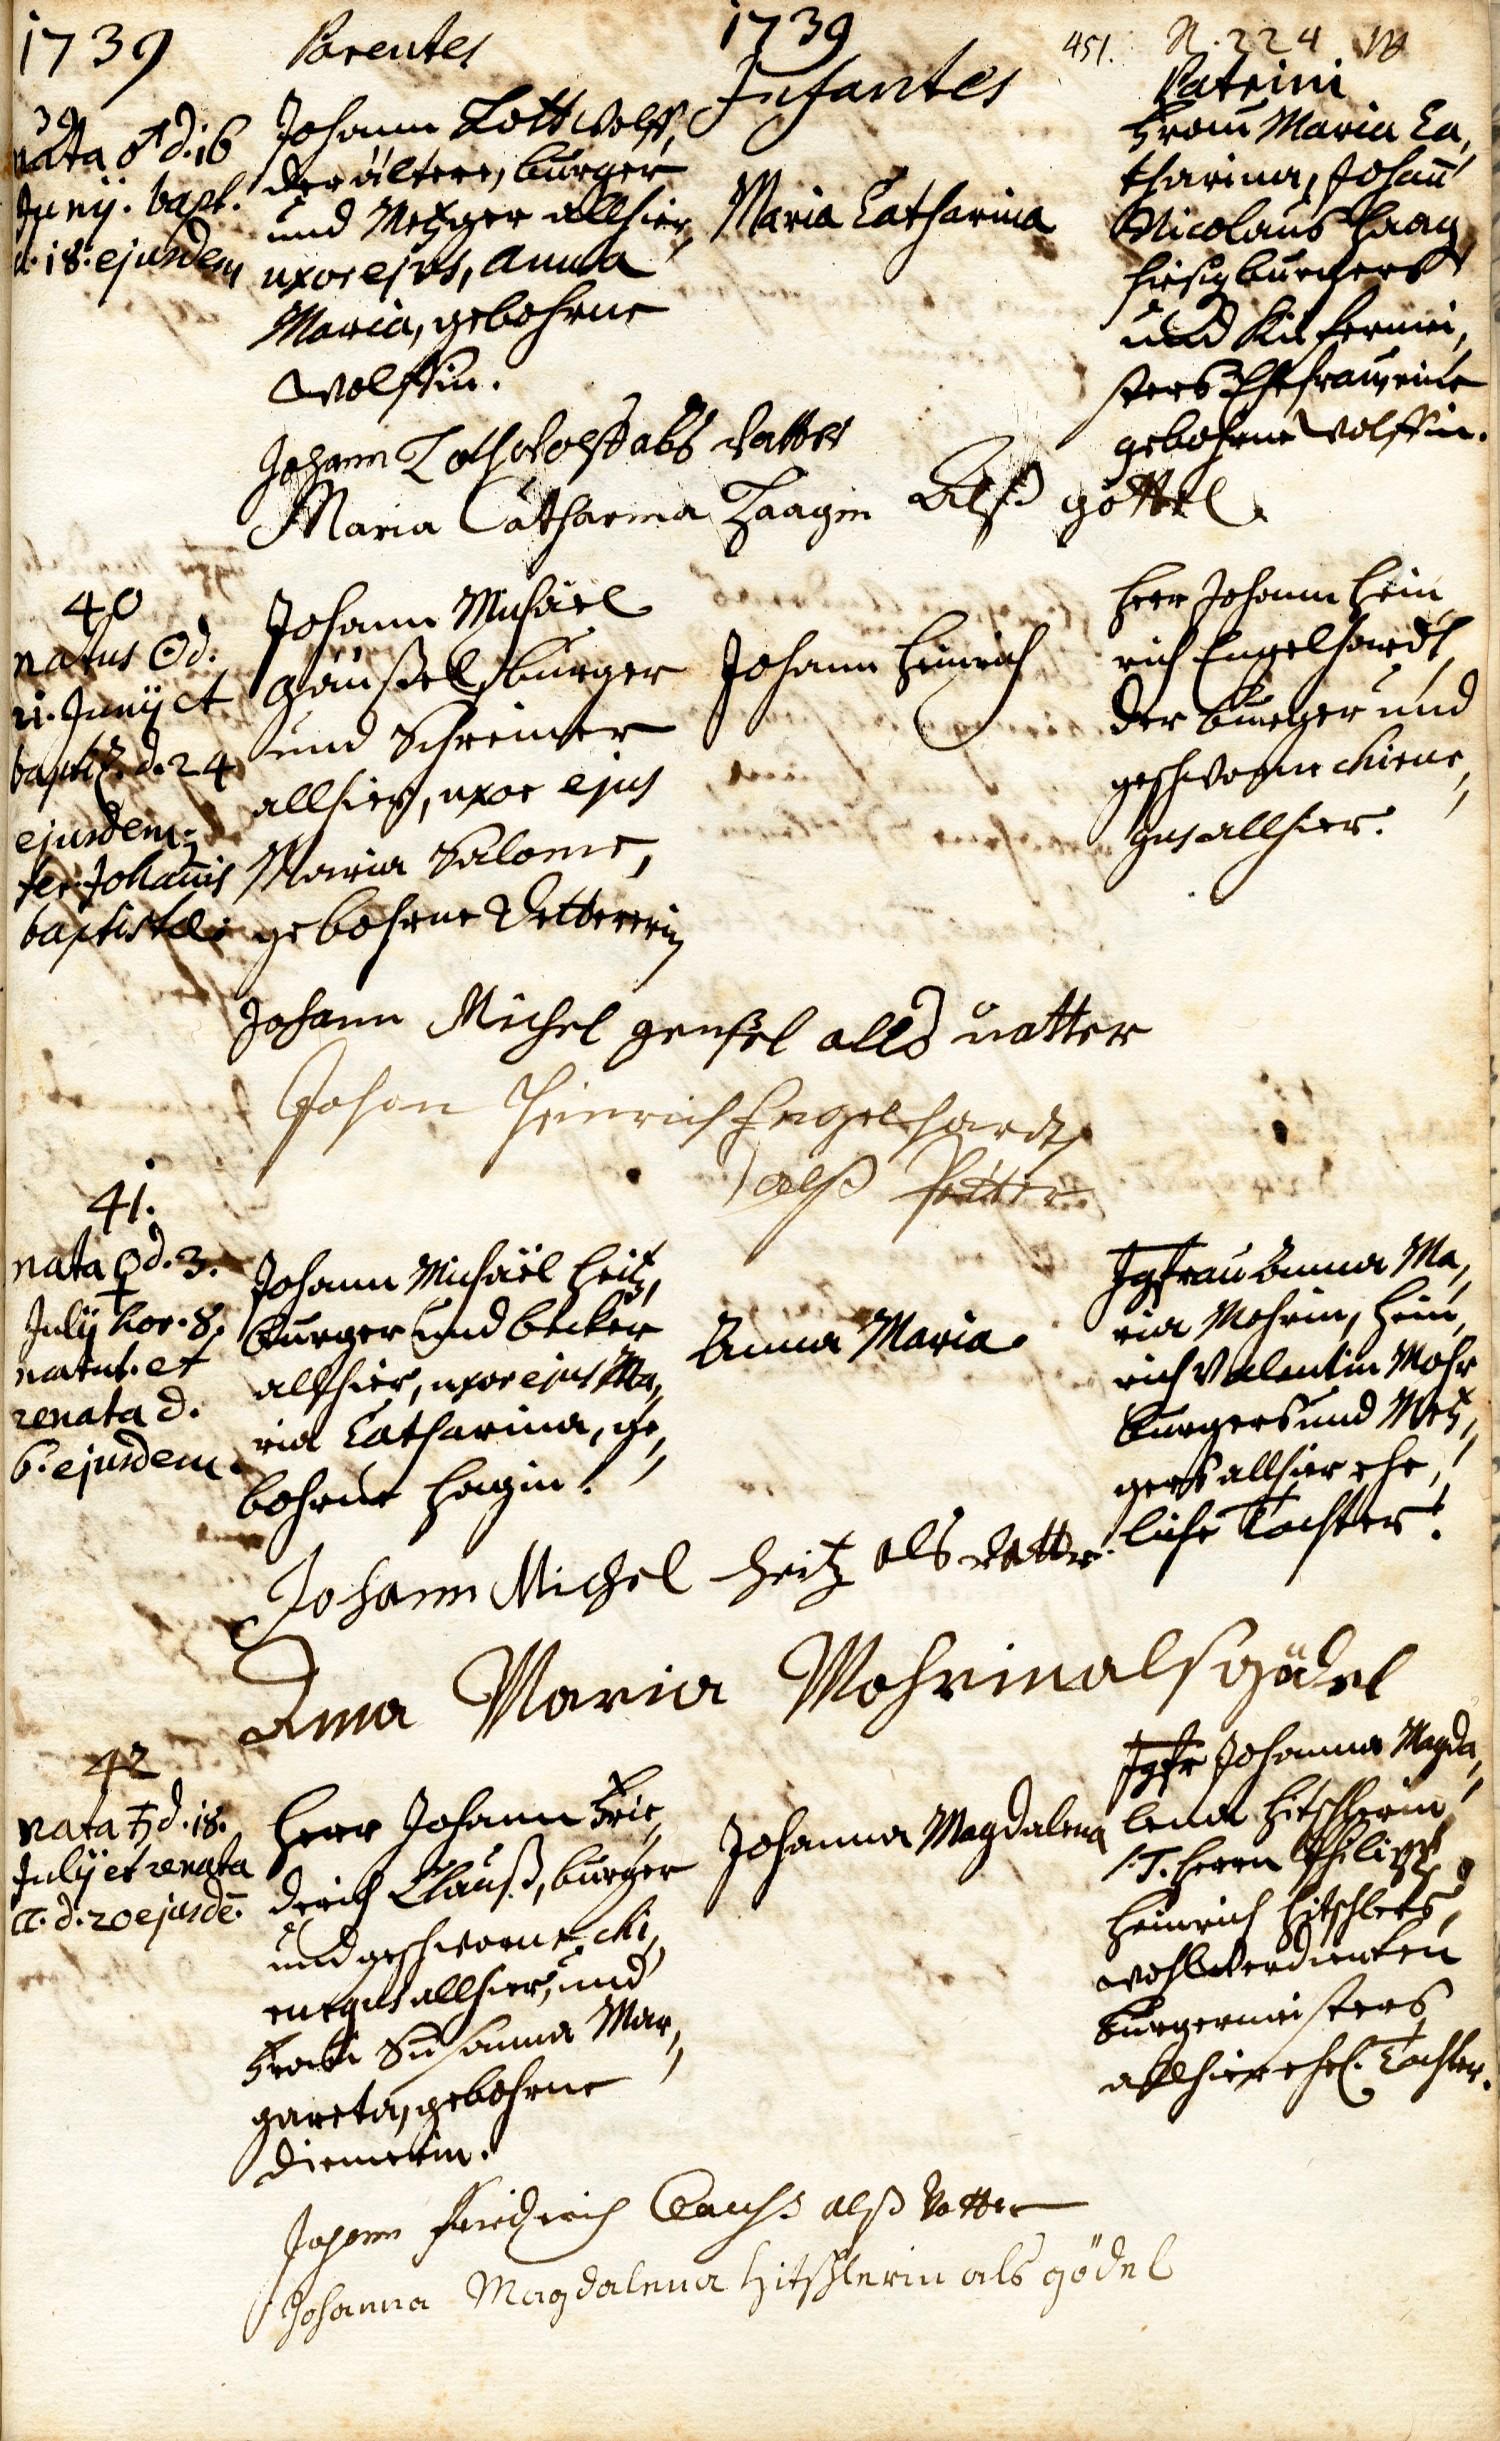 1739
Parentes
1739
Infantes
451.
N. 224
Patrini
39
nata ♂ d. 16
Junÿ. bapt.
d. 18. ejusdem
Johann Lott Wolff,
der ältere, burger
und Metzger allhier,
uxor ejus, Anna
Maria, gebohrne
Wolffin.
Maria Catharina
Frau Maria Ca,
tharina, Johann
Nicolaus Haag
hiesig burgers
und Kiefermei,
sters Ehefrau, eine
gebohrne Wolffin.
Johann Loth Wolff als Vatter
Maria Catharina Haagin Alß göttel
40
natus ☉ d.
21. Junÿ et
baptiz. d. 24
ejusdem
fer. Johannis
baptistæ.
Johann Michäel
Gänßel, burger
und Schreiner
allhier, uxor ejus
Maria Salome,
gebohrne Vettererin
Johann Heinrich
Herr Johann Hein
rich Engelhardt,
der burger und
geschworne chirur,
gus allhier.
Johann Michel genßel alls vatter
Johan Heinrich Engelhardt
alß Petter
41.
nata ♀ d. 3.
Julÿ hor. 8.
matut. et
renata d.
6. ejusdem.
Johann Michäel Heitz,
burger und becker
allhier, uxor ejus Ma,
ria Catharina, ge,
bohrne Hagin.
Anna Maria
Jgfrau Anna Ma,
ria Mohrin, Hein,
rich Valentin Mohr
burgers und Metz,
gers allhier ehe,
liche Tochter.
Johann Michel Heitz als Vatter
Anna Maria Mohrin als gödel
42
nata ♄ d. 18.
Julÿ et renata
d. 20 ejusdē.
Herr Johann Frie,
derich Clauß, burger
und geschworne chi,
rurgus allhier, und
Frau Susanna Mar,
gareta, gebohrne
Diemerin.
Johanna Magdalena
Jgfr Johanna Magda,
lena Hitschlerin,
S. T. Herrn Philipp
Heinrich Hitschlers,
wohlverdienten
burgermeisters
allhier ehel. Tochter.
Johann Friedrich Clauß alß Vatter
Johanna Magdalena Hitschlerin als gödel